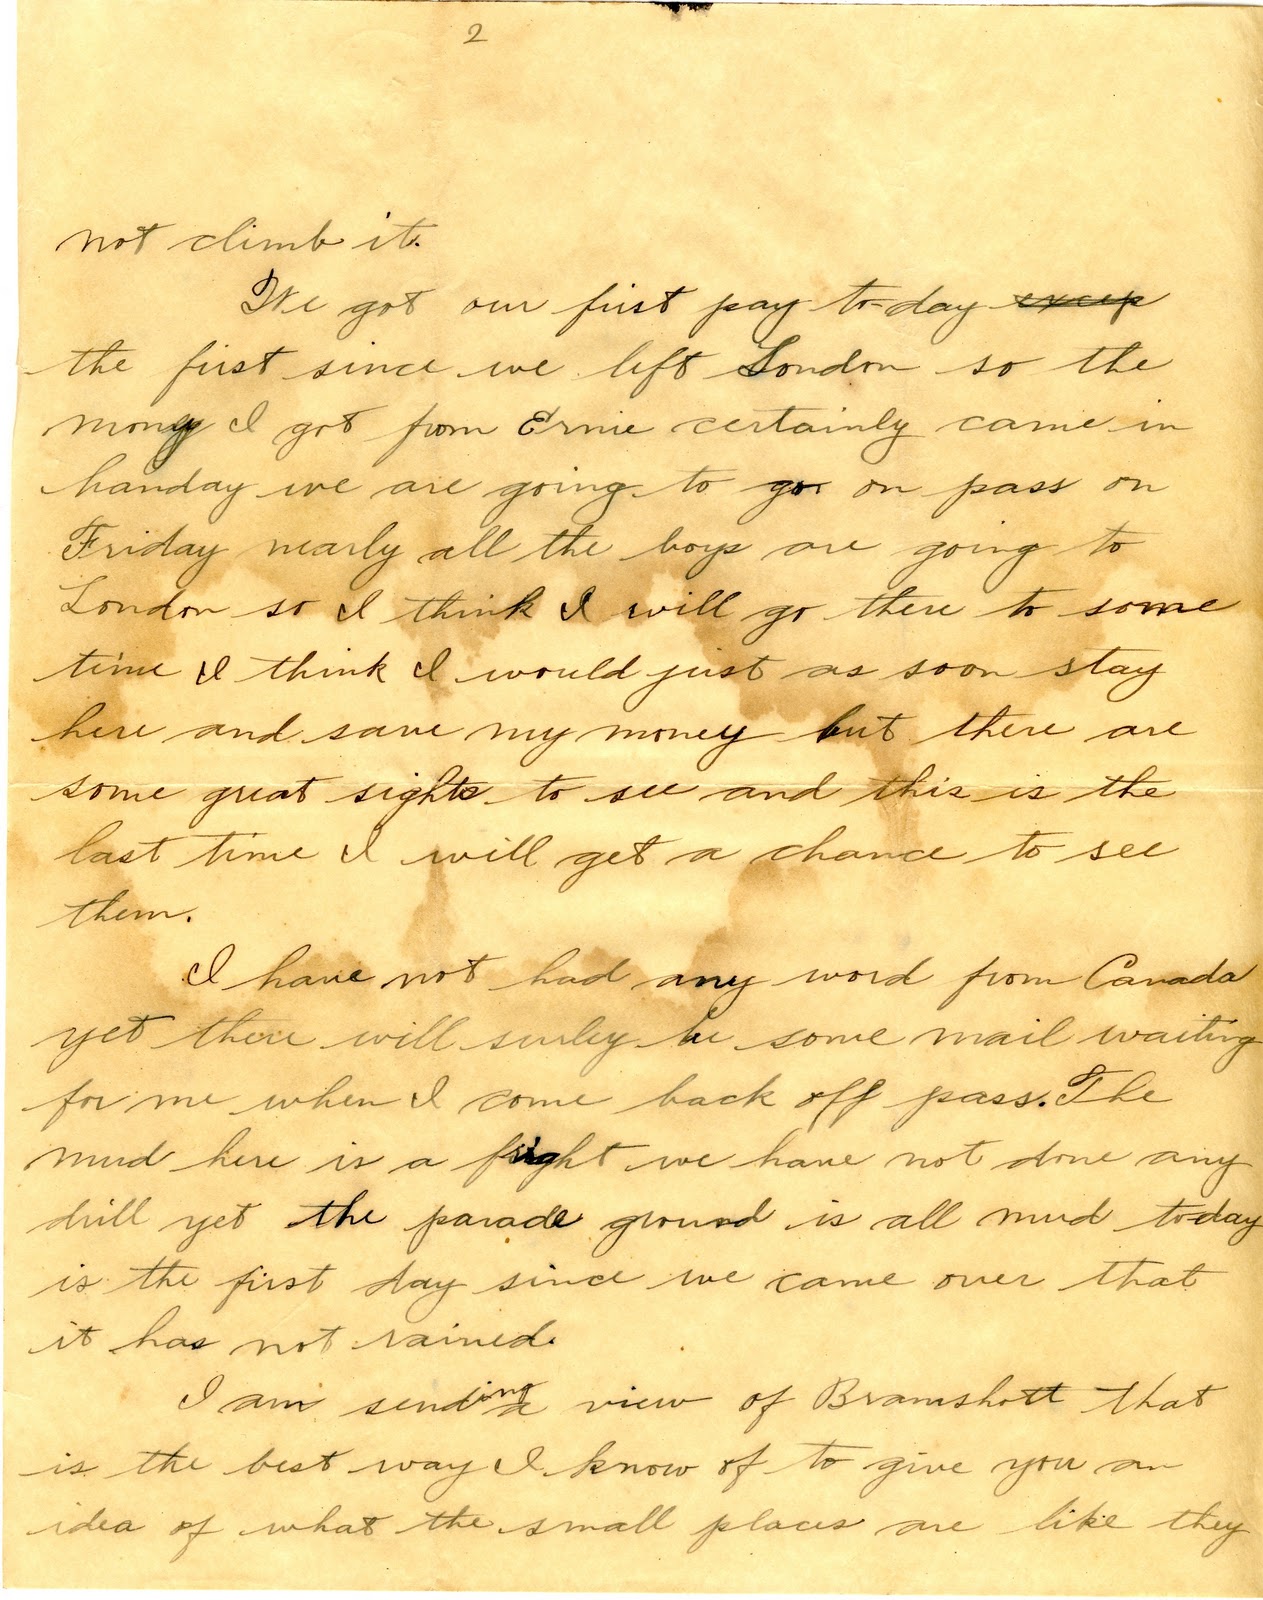 2
not climb it.
We got our first pay to-day excep
the first since we left London so the
mony I got from Ernie certainly came in
handay we are going to go on pass on
Friday nearly all the boys are going to
London so I think I will go there to some
time I think I would just as soon stay
here and save my money but there are
some great sights to see and this is the
last time I will get a chance to see
them.
I have not had any word from Canada
yet there will surley be some mail waiting
for me when I come back off pass. The
mud here is a fright we have not done any
drill yet the parade ground is all mud to-day
is the first day since we came over that
it has not rained.
I am sending a view of Bramshott that
is the best way I know of to give you an
idea of what the small places are like they